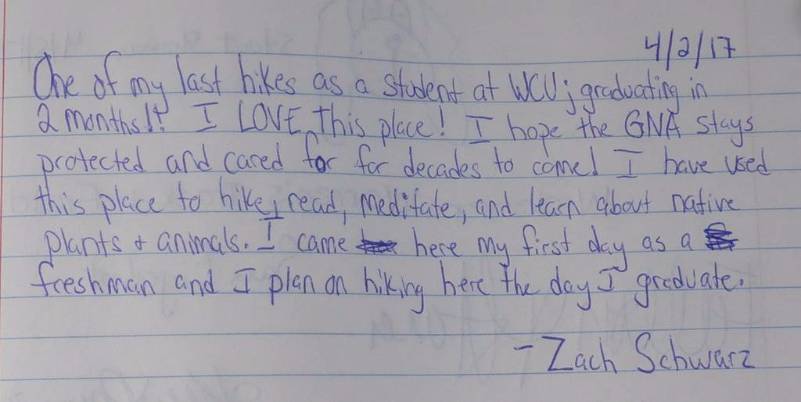 4/2/17
One of my last hikes as a student at WCU; graduating in
2 months!? I LOVE this place! I hope the GNA stays
protected and cared for for decades to come! I have used
this place to hike, read, meditate, and learn about native
plants + animals. I came here my first day as a
freshman and I plan on hiking here the day I graduate.
- Zach Schwarz